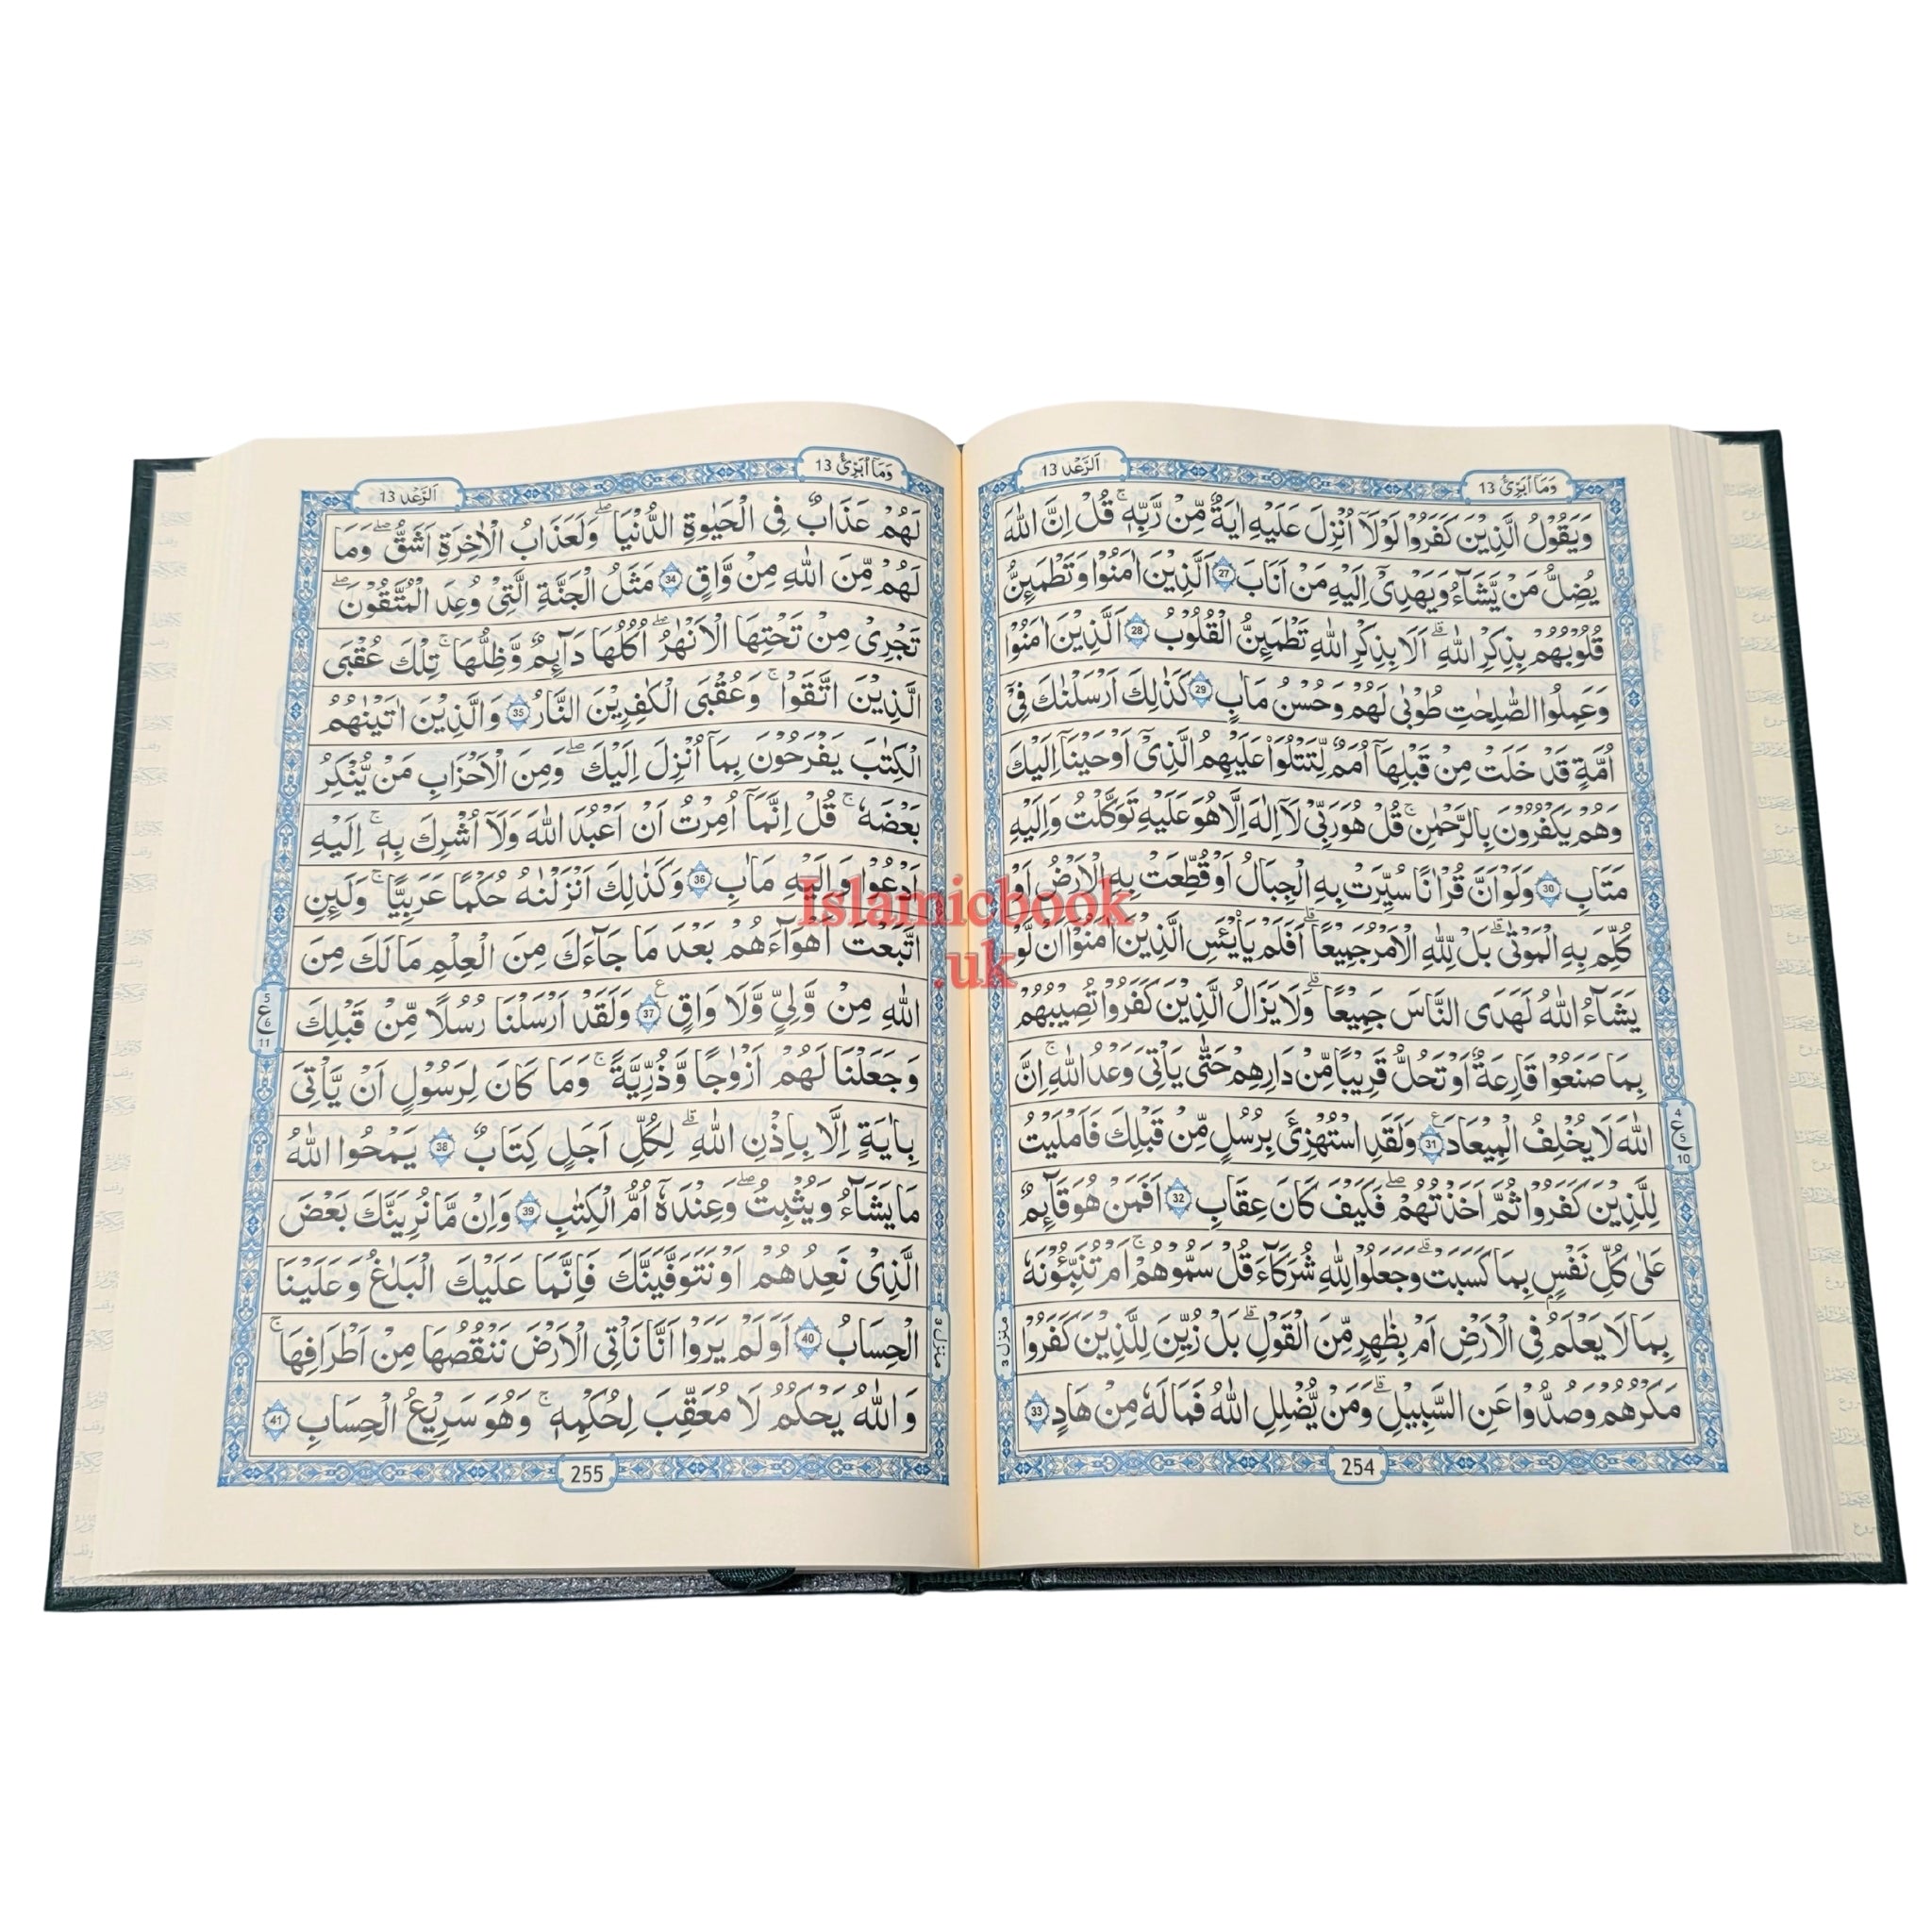 اَلرَّعْد 13
وَمَاۤ اُبَرِّئُ 13
وَيَقُوْلُ الَّذِيْنَ كَفَرُوْا لَوْلَاۤ اُنْزِلَ عَلَيْهِ اٰيَةٌ مِّنْ رَّبِّهٖ ۚ قُلْ اِنَّ اللّٰهَ
يُضِلُّ مَنْ يَّشَآءُ وَيَهْدِىْۤ اِلَيْهِ مَنْ اَنَابَ 27 اَلَّذِيْنَ اٰمَنُوْا وَتَطْمَىِٕنُّ
قُلُوْبُهُمْ بِذِكْرِ اللّٰهِ ؕ اَلَا بِذِكْرِ اللّٰهِ تَطْمَىِٕنُّ الْقُلُوْبُ 28 اَلَّذِيْنَ اٰمَنُوْا
وَعَمِلُوا الصّٰلِحٰتِ طُوْبٰى لَهُمْ وَحُسْنُ مَاٰبٍ 29 كَذٰلِكَ اَرْسَلْنٰكَ فِىْۤ
اُمَّةٍ قَدْ خَلَتْ مِنْ قَبْلِهَاۤ اُمَمٌ لِّتَتْلُوَا۟ عَلَيْهِمُ الَّذِىْۤ اَوْحَيْنَاۤ اِلَيْكَ
وَهُمْ يَكْفُرُوْنَ بِالرَّحْمٰنِ ۚ قُلْ هُوَ رَبِّىْ لَاۤ اِلٰهَ اِلَّا هُوَ عَلَيْهِ تَوَكَّلْتُ وَاِلَيْهِ
مَتَابِ 30 وَلَوْ اَنَّ قُرْاٰنًا سُيِّرَتْ بِهِ الْجِبَالُ اَوْ قُطِّعَتْ بِهِ الْاَرْضُ اَوْ
كُلِّمَ بِهِ الْمَوْتٰى ؕ بَلْ لِّلّٰهِ الْاَمْرُ جَمِيْعًا ؕ اَفَلَمْ يَا۟يْـَٔسِ الَّذِيْنَ اٰمَنُوْۤا اَنْ لَّوْ
يَشَآءُ اللّٰهُ لَهَدَى النَّاسَ جَمِيْعًا ؕ وَلَا يَزَالُ الَّذِيْنَ كَفَرُوْا تُصِيْبُهُمْ
بِمَا صَنَعُوْا قَارِعَةٌ اَوْ تَحُلُّ قَرِيْبًا مِّنْ دَارِهِمْ حَتّٰى يَاْتِىَ وَعْدُ اللّٰهِ ؕ اِنَّ
اللّٰهَ لَا يُخْلِفُ الْمِيْعَادَ 31 وَلَقَدِ اسْتُهْزِئَ بِرُسُلٍ مِّنْ قَبْلِكَ فَاَمْلَيْتُ
لِلَّذِيْنَ كَفَرُوْا ثُمَّ اَخَذْتُهُمْ ۖ فَكَيْفَ كَانَ عِقَابِ 32 اَفَمَنْ هُوَ قَآىِٕمٌ
عَلٰى كُلِّ نَفْسٍۭ بِمَا كَسَبَتْ ؕ وَجَعَلُوْا لِلّٰهِ شُرَكَآءَ قُلْ سَمُّوْهُمْ ؕ اَمْ تُنَبِّـُٔوْنَهٗ
بِمَا لَا يَعْلَمُ فِى الْاَرْضِ اَمْ بِظَاهِرٍ مِّنَ الْقَوْلِ ؕ بَلْ زُيِّنَ لِلَّذِيْنَ كَفَرُوْا
مَكْرُهُمْ وَصُدُّوْا عَنِ السَّبِيْلِ ؕ وَمَنْ يُّضْلِلِ اللّٰهُ فَمَا لَهٗ مِنْ هَادٍ 33
4
ع 5
10
منزل 3
254
وَمَاۤ اُبَرِّئُ 13
اَلرَّعْد 13
لَهُمْ عَذَابٌ فِى الْحَيٰوةِ الدُّنْيَا ۖ وَلَعَذَابُ الْاٰخِرَةِ اَشَقُّ ۖ وَمَا
لَهُمْ مِّنَ اللّٰهِ مِنْ وَّاقٍ 34 مَثَلُ الْجَنَّةِ الَّتِىْ وُعِدَ الْمُتَّقُوْنَ ۖ
تَجْرِىْ مِنْ تَحْتِهَا الْاَنْهٰرُ ۖ اُكُلُهَا دَآىِٕمٌ وَّظِلُّهَا ۚ تِلْكَ عُقْبَى
الَّذِيْنَ اتَّقَوْا ۚ وَعُقْبَى الْكٰفِرِيْنَ النَّارُ 35 وَالَّذِيْنَ اٰتَيْنٰهُمُ
الْكِتٰبَ يَفْرَحُوْنَ بِمَاۤ اُنْزِلَ اِلَيْكَ ۖ وَمِنَ الْاَحْزَابِ مَنْ يُّنْكِرُ
بَعْضَهٗ ۚ قُلْ اِنَّمَاۤ اُمِرْتُ اَنْ اَعْبُدَ اللّٰهَ وَلَاۤ اُشْرِكَ بِهٖ ۚ اِلَيْهِ
اَدْعُوْا وَاِلَيْهِ مَاٰبِ 36 وَكَذٰلِكَ اَنْزَلْنٰهُ حُكْمًا عَرَبِيًّا ۚ وَلَىِٕنِ
اتَّبَعْتَ اَهْوَآءَهُمْ بَعْدَ مَا جَآءَكَ مِنَ الْعِلْمِ مَا لَكَ مِنَ
اللّٰهِ مِنْ وَّلِىٍّ وَّلَا وَاقٍ 37 وَلَقَدْ اَرْسَلْنَا رُسُلًا مِّنْ قَبْلِكَ
وَجَعَلْنَا لَهُمْ اَزْوَاجًا وَّذُرِّيَّةً ۚ وَمَا كَانَ لِرَسُوْلٍ اَنْ يَّاْتِىَ
بِاٰيَةٍ اِلَّا بِاِذْنِ اللّٰهِ ؕ لِكُلِّ اَجَلٍ كِتَابٌ 38 يَمْحُوا اللّٰهُ
مَا يَشَآءُ وَيُثْبِتُ ۖ وَعِنْدَهٗۤ اُمُّ الْكِتٰبِ 39 وَاِنْ مَّا نُرِيَنَّكَ بَعْضَ
الَّذِىْ نَعِدُهُمْ اَوْ نَتَوَفَّيَنَّكَ فَاِنَّمَا عَلَيْكَ الْبَلٰغُ وَعَلَيْنَا
الْحِسَابُ 40 اَوَلَمْ يَرَوْا اَنَّا نَاْتِى الْاَرْضَ نَنْقُصُهَا مِنْ اَطْرَافِهَا ۚ
وَاللّٰهُ يَحْكُمُ لَا مُعَقِّبَ لِحُكْمِهٖ ۚ وَهُوَ سَرِيْعُ الْحِسَابِ 41
5
ع 6
11
منزل 3
255
Islamicbook
.uk